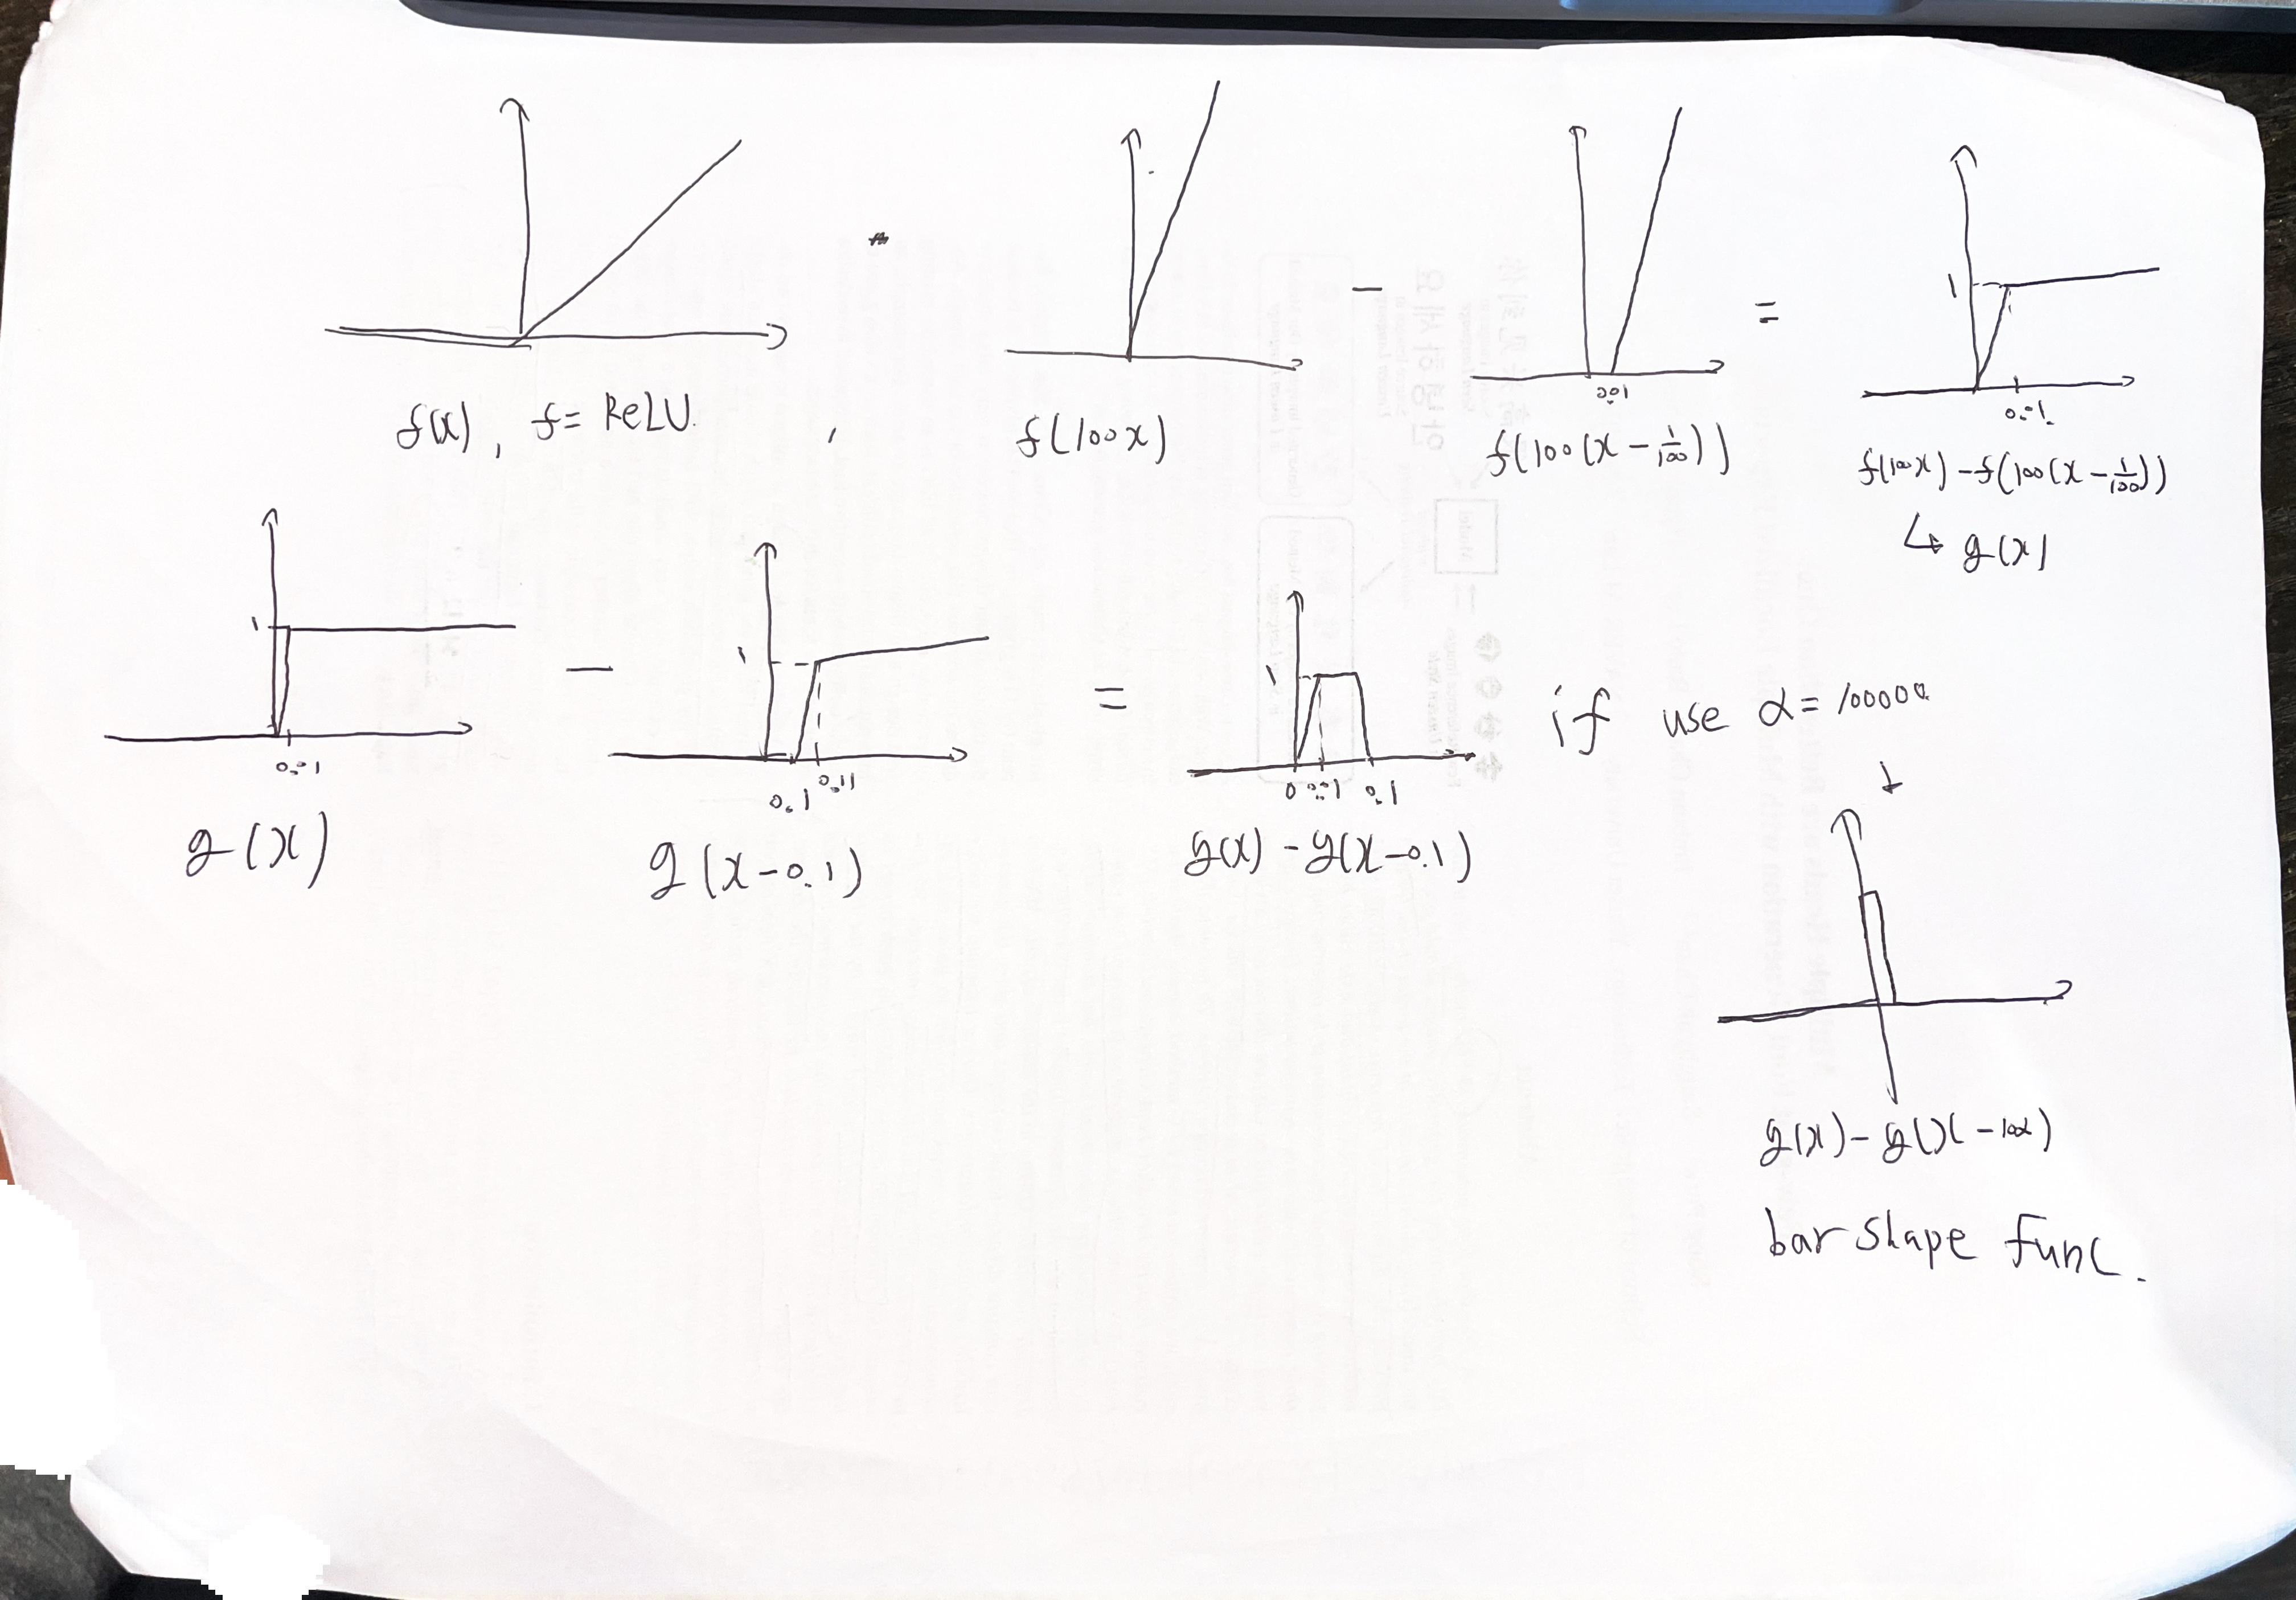 f(x), f = ReLU. , f(100x) - f(100(x - 1/100)) = f(100x) - f(100(x - 1/100))
0.01
1
0.01
↳ g(x)
1
0.01
g(x)
-
1
0.1 0.11
g(x-0.1)
=
1
0 0.01 0.1
g(x) - g(x-0.1)
if use α = 100000
↓
bar shape func.